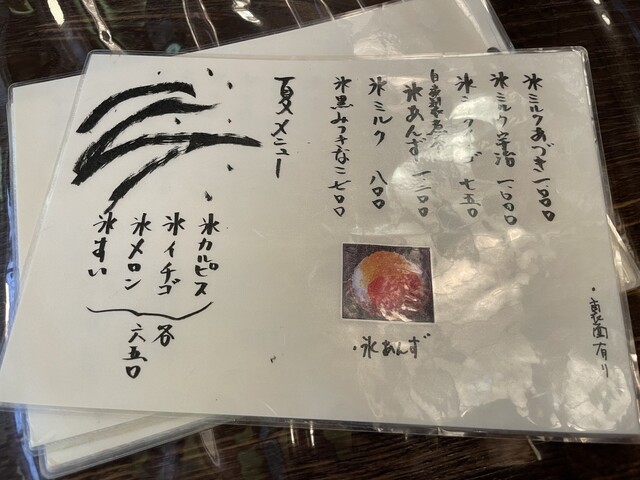 氷ミルクあづき 一、〇〇〇
氷ミルク宇治 一、〇〇〇
七五〇
自家製
氷あんず 一、二〇〇
氷ミルク 八〇〇
氷黒みつきなこ 七〇〇
夏メニュー
氷カルピス
氷イチゴ
氷メロン
氷すい
各
六五〇
・氷あんず
・裏面有り